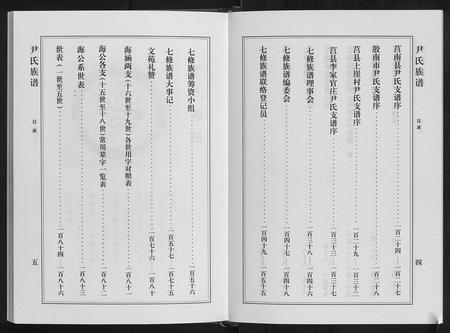 尹氏族谱
目录
莒南县尹氏支谱序……一百二十四—一百二十七
胶南市尹氏支谱序……一百二十八
莒县上崖村尹氏支谱序……一百二十九—一百三十二
莒县李家官庄尹氏支谱序……一百三十三—一百三十七
七修族谱理事会……一百三十八
七修族谱编委会……一百四十七—一百四十八
七修族谱联络登记员……一百四十九—一百五十五
四
七修族谱筹资小组
七修族谱大事记……一百五十七—一百七十五
文苑礼赞……一百七十六—一百八十
海涵两支(十六世至十九世)各世用字对照表……一百八十一
海公各支(十五世至十八世)常用辈字一览表……一百八十二
海公系世表……一百八十三
世表(一世至五世)……一百八十四—一百八十六
尹氏族谱
目录
五